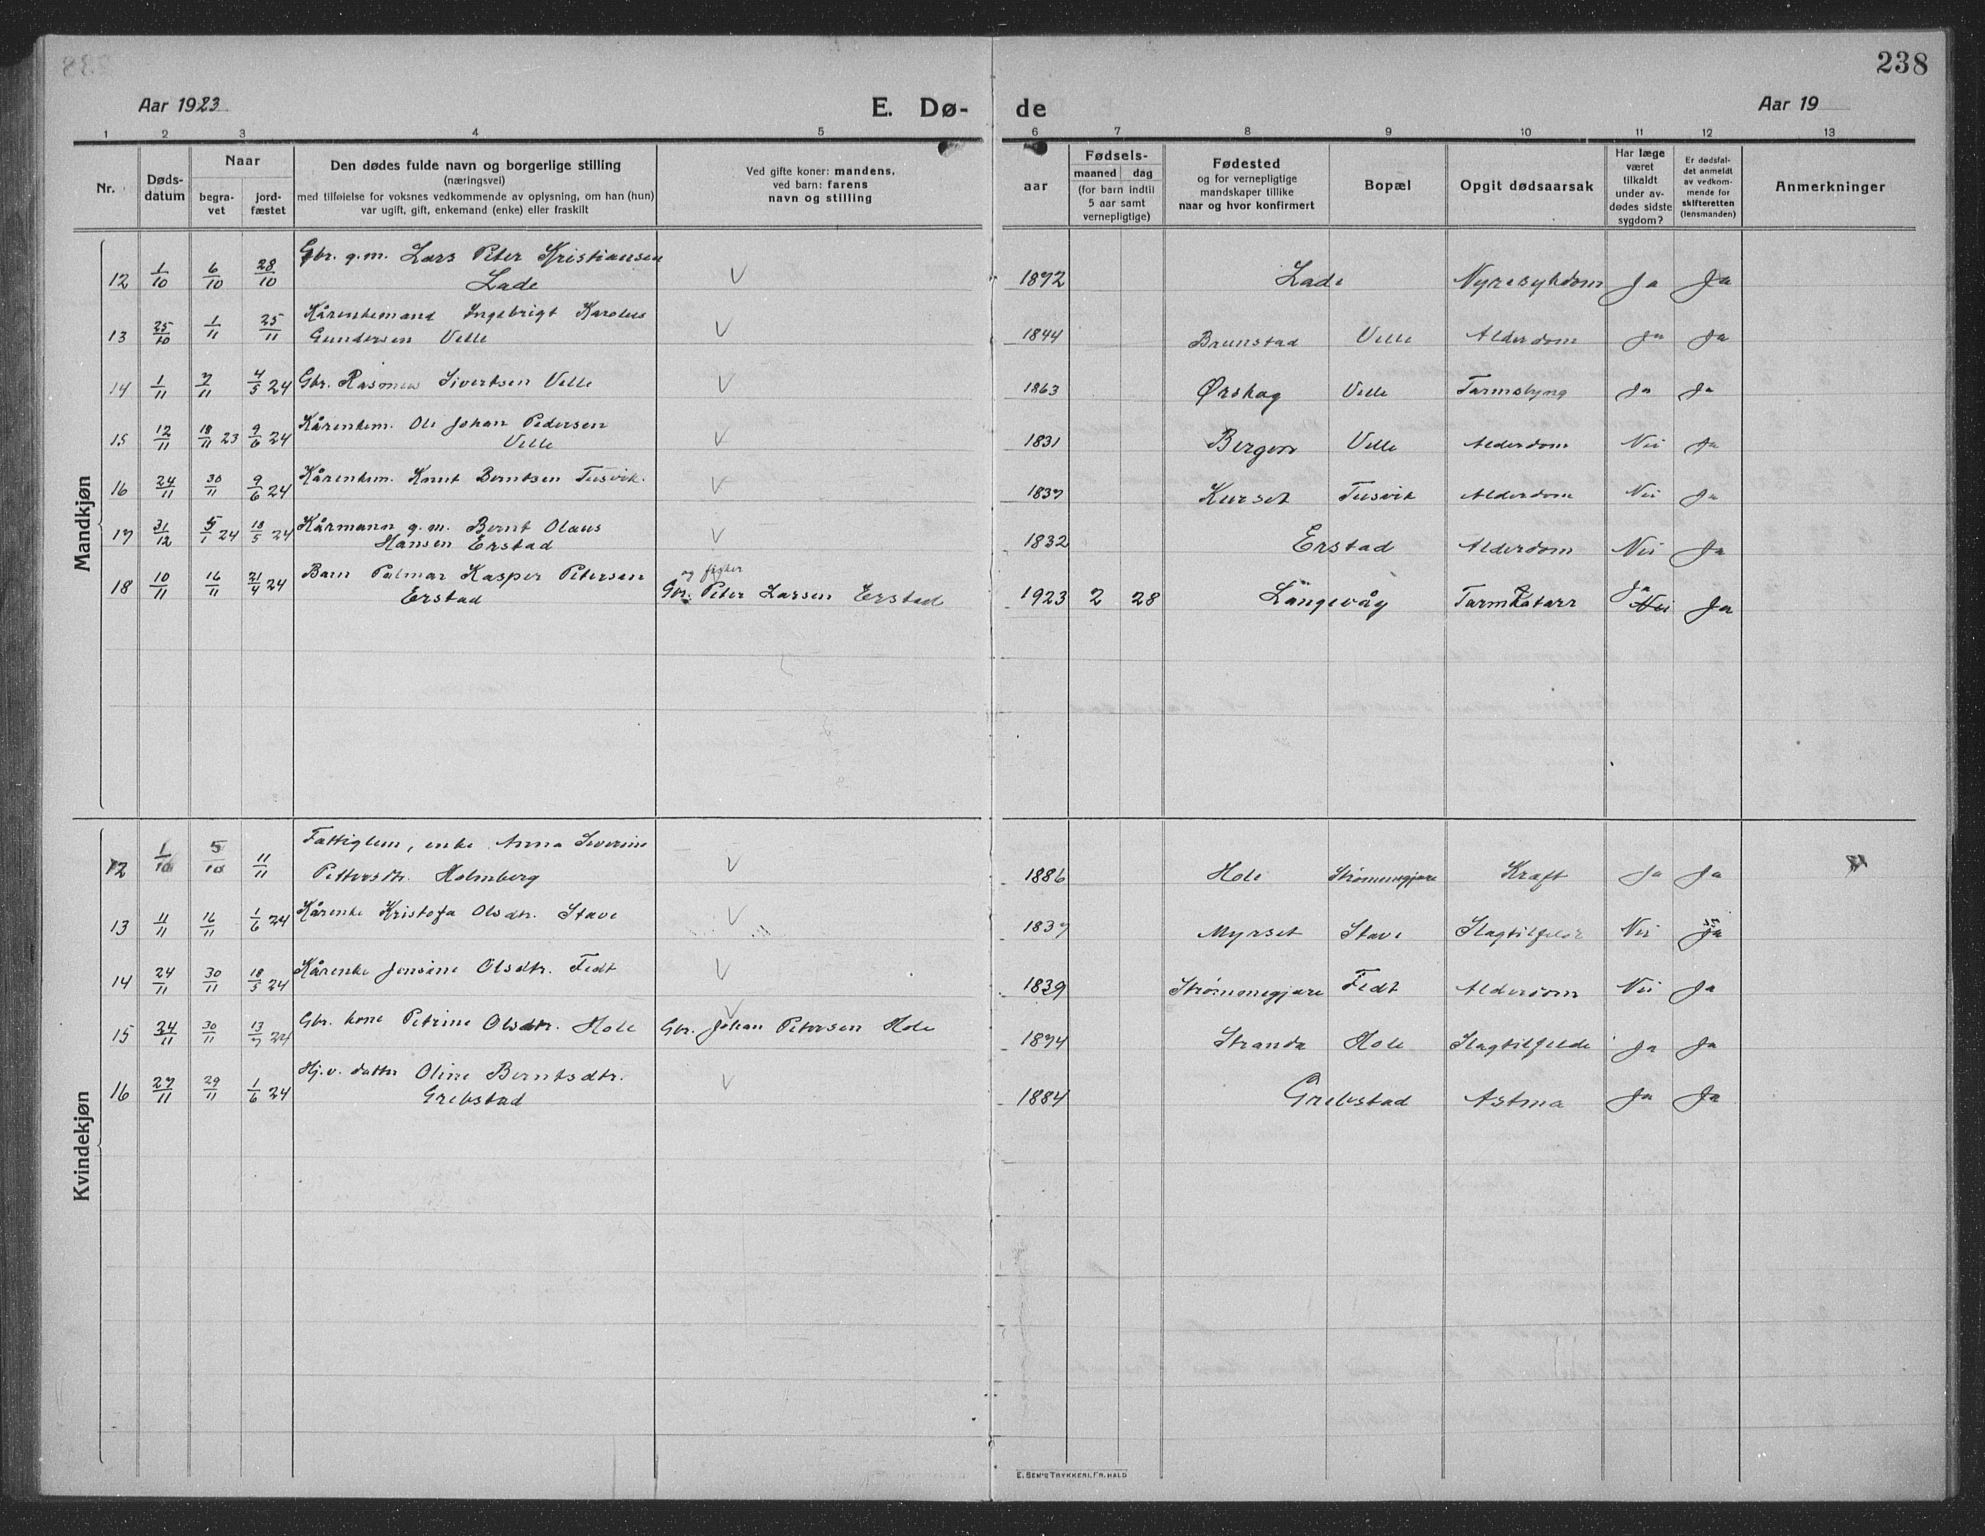 238
Aar 1923 E. Dø- de Aar 19
1 2 3 4 5 6 7 8 9 10 11 12 13
Nr.
Døds-
datum
Naar
begra-
vet
jord-
fæstet
Den dødes fulde navn og borgerlige stilling
(næringsvei)
med tilføielse for voksnes vedkommende av oplysning, om han (hun)
var ugift, gift, enkemand (enke) eller fraskilt
Ved gifte koner: mandens,
ved barn: farens
navn og stilling
aar
Fødsels-
maaned dag
(for barn indtil
5 aar samt
vernepligtige)
Fødested
og for vernepligtige
mandskaper tillike
naar og hvor konfirmert
Bopæl
Opgit dødsaarsak
Har læge
været
tilkaldt
under av-
dødes sidste
sygdom?
Er dødsfal-
det anmeldt
av vedkom-
mende for
skifteretten
(lensmanden)
Anmerkninger
Mandkjøn
12 1/10 6/10 28/10 Gbr. g.m. Lars Peter Kristiansen
Lade V 1872 Lade Nyresykdom Ja Ja
13 25/10 1/11 25/11 Kårenkemand Ingebrigt Karolus
Gundersen Velle V 1844 Brunstad Velle Alderdom Ja Ja
14 1/11 7/11 4/5 24 Gbr. Rasmus Sivertsen Velle V 1863 Ørskog Velle Tarmslyng Ja Ja
15 12/11 18/11 23 9/6 24 Kårenkem. Ole Johan Pedersen
Velle V 1831 Bergen Velle Alderdom Nei Ja
16 24/11 30/11 9/6 24 Kårenkem. Knut Berntsen Tusvik. V 1837 Kurset Tusvik Alderdom Nei Ja
17 31/12 5/1 24 18/5 24 Kårmann g.m. Bernt Olaus
Hansen Erstad V 1832 Erstad Alderdom Nei Ja
18 10/11 16/11 21/4 24 Barn Palmar Kasper Petersen
Erstad
og fisker
Gbr. Peter Larsen Erstad 1923 2 28 Langevåg Tarmkatarr Ja Nei Ja
Kvindekjøn
12 1/10 5/10 11/11 Fattiglem, enke Anna Severine
Pettersdtr. Holmberg V 1886 Hole Strømmegjære Kræft Ja Ja
13 11/11 16/11 1/6 24 Kårenke Kristofa Olsdtr. Stave V 1837 Myrset Stave Slagtilfelde Nei Ja
14 24/11 30/11 18/5 24 Kårenke Jonsine Olsdtr. Fedt V 1839 Strømmegjære Fedt Alderdom Nei Ja
15 24/11 30/11 13/7 24 Gbr. kone Petrine Olsdtr. Hole V Gbr. Johan Petersen Hole 1874 Stranda Hole Slagtilfelde Ja Ja
16 27/11 29/11 1/6 24 Hj.v. datter Oline Berntsdtr.
Grebstad V 1884 Grebstad Astma Ja Ja
E. SEM'S TRYKKERI, FR. HALD